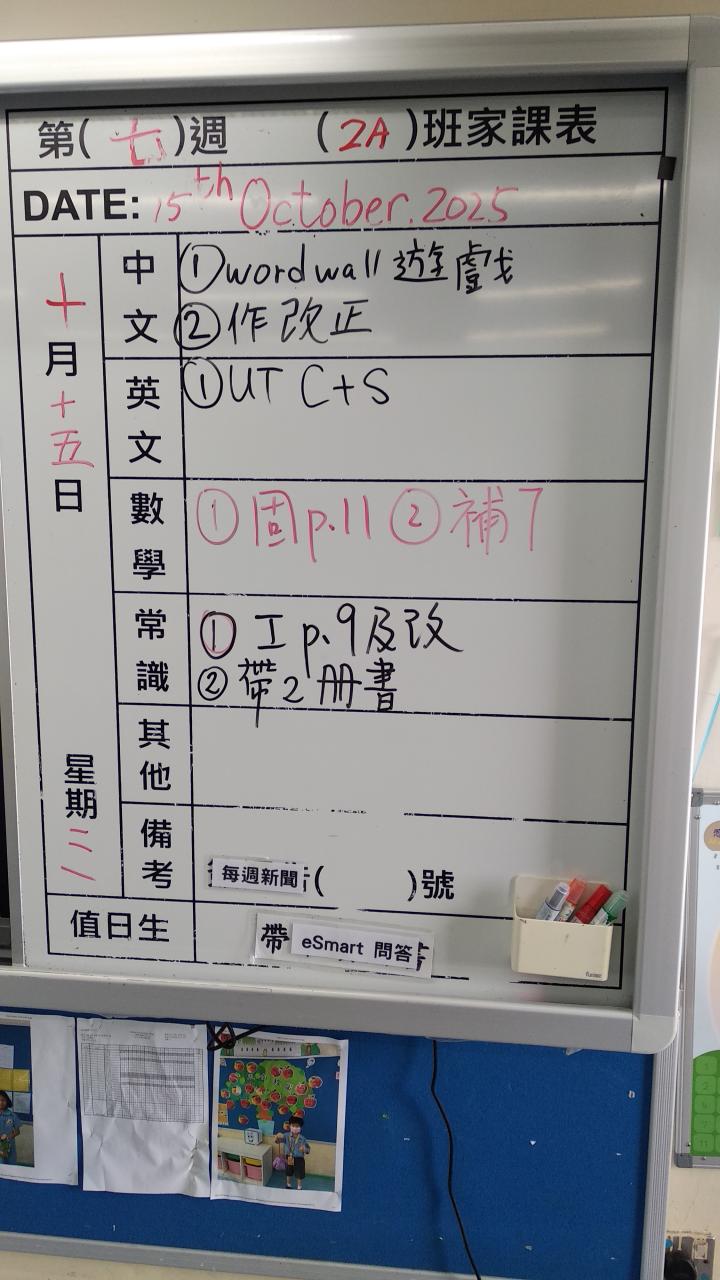 第(七)週 (2A)班家課表
DATE: 15th October. 2025
十月十五日
星期三
中文
①wordwall 遊戲
②作改正
英文
①UT C+S
數學
①固p.11 ②補7
常識
①工p.9及改
②帶2冊書
其他
備考
每週新聞 ( )號
值日生
帶 eSmart 問答